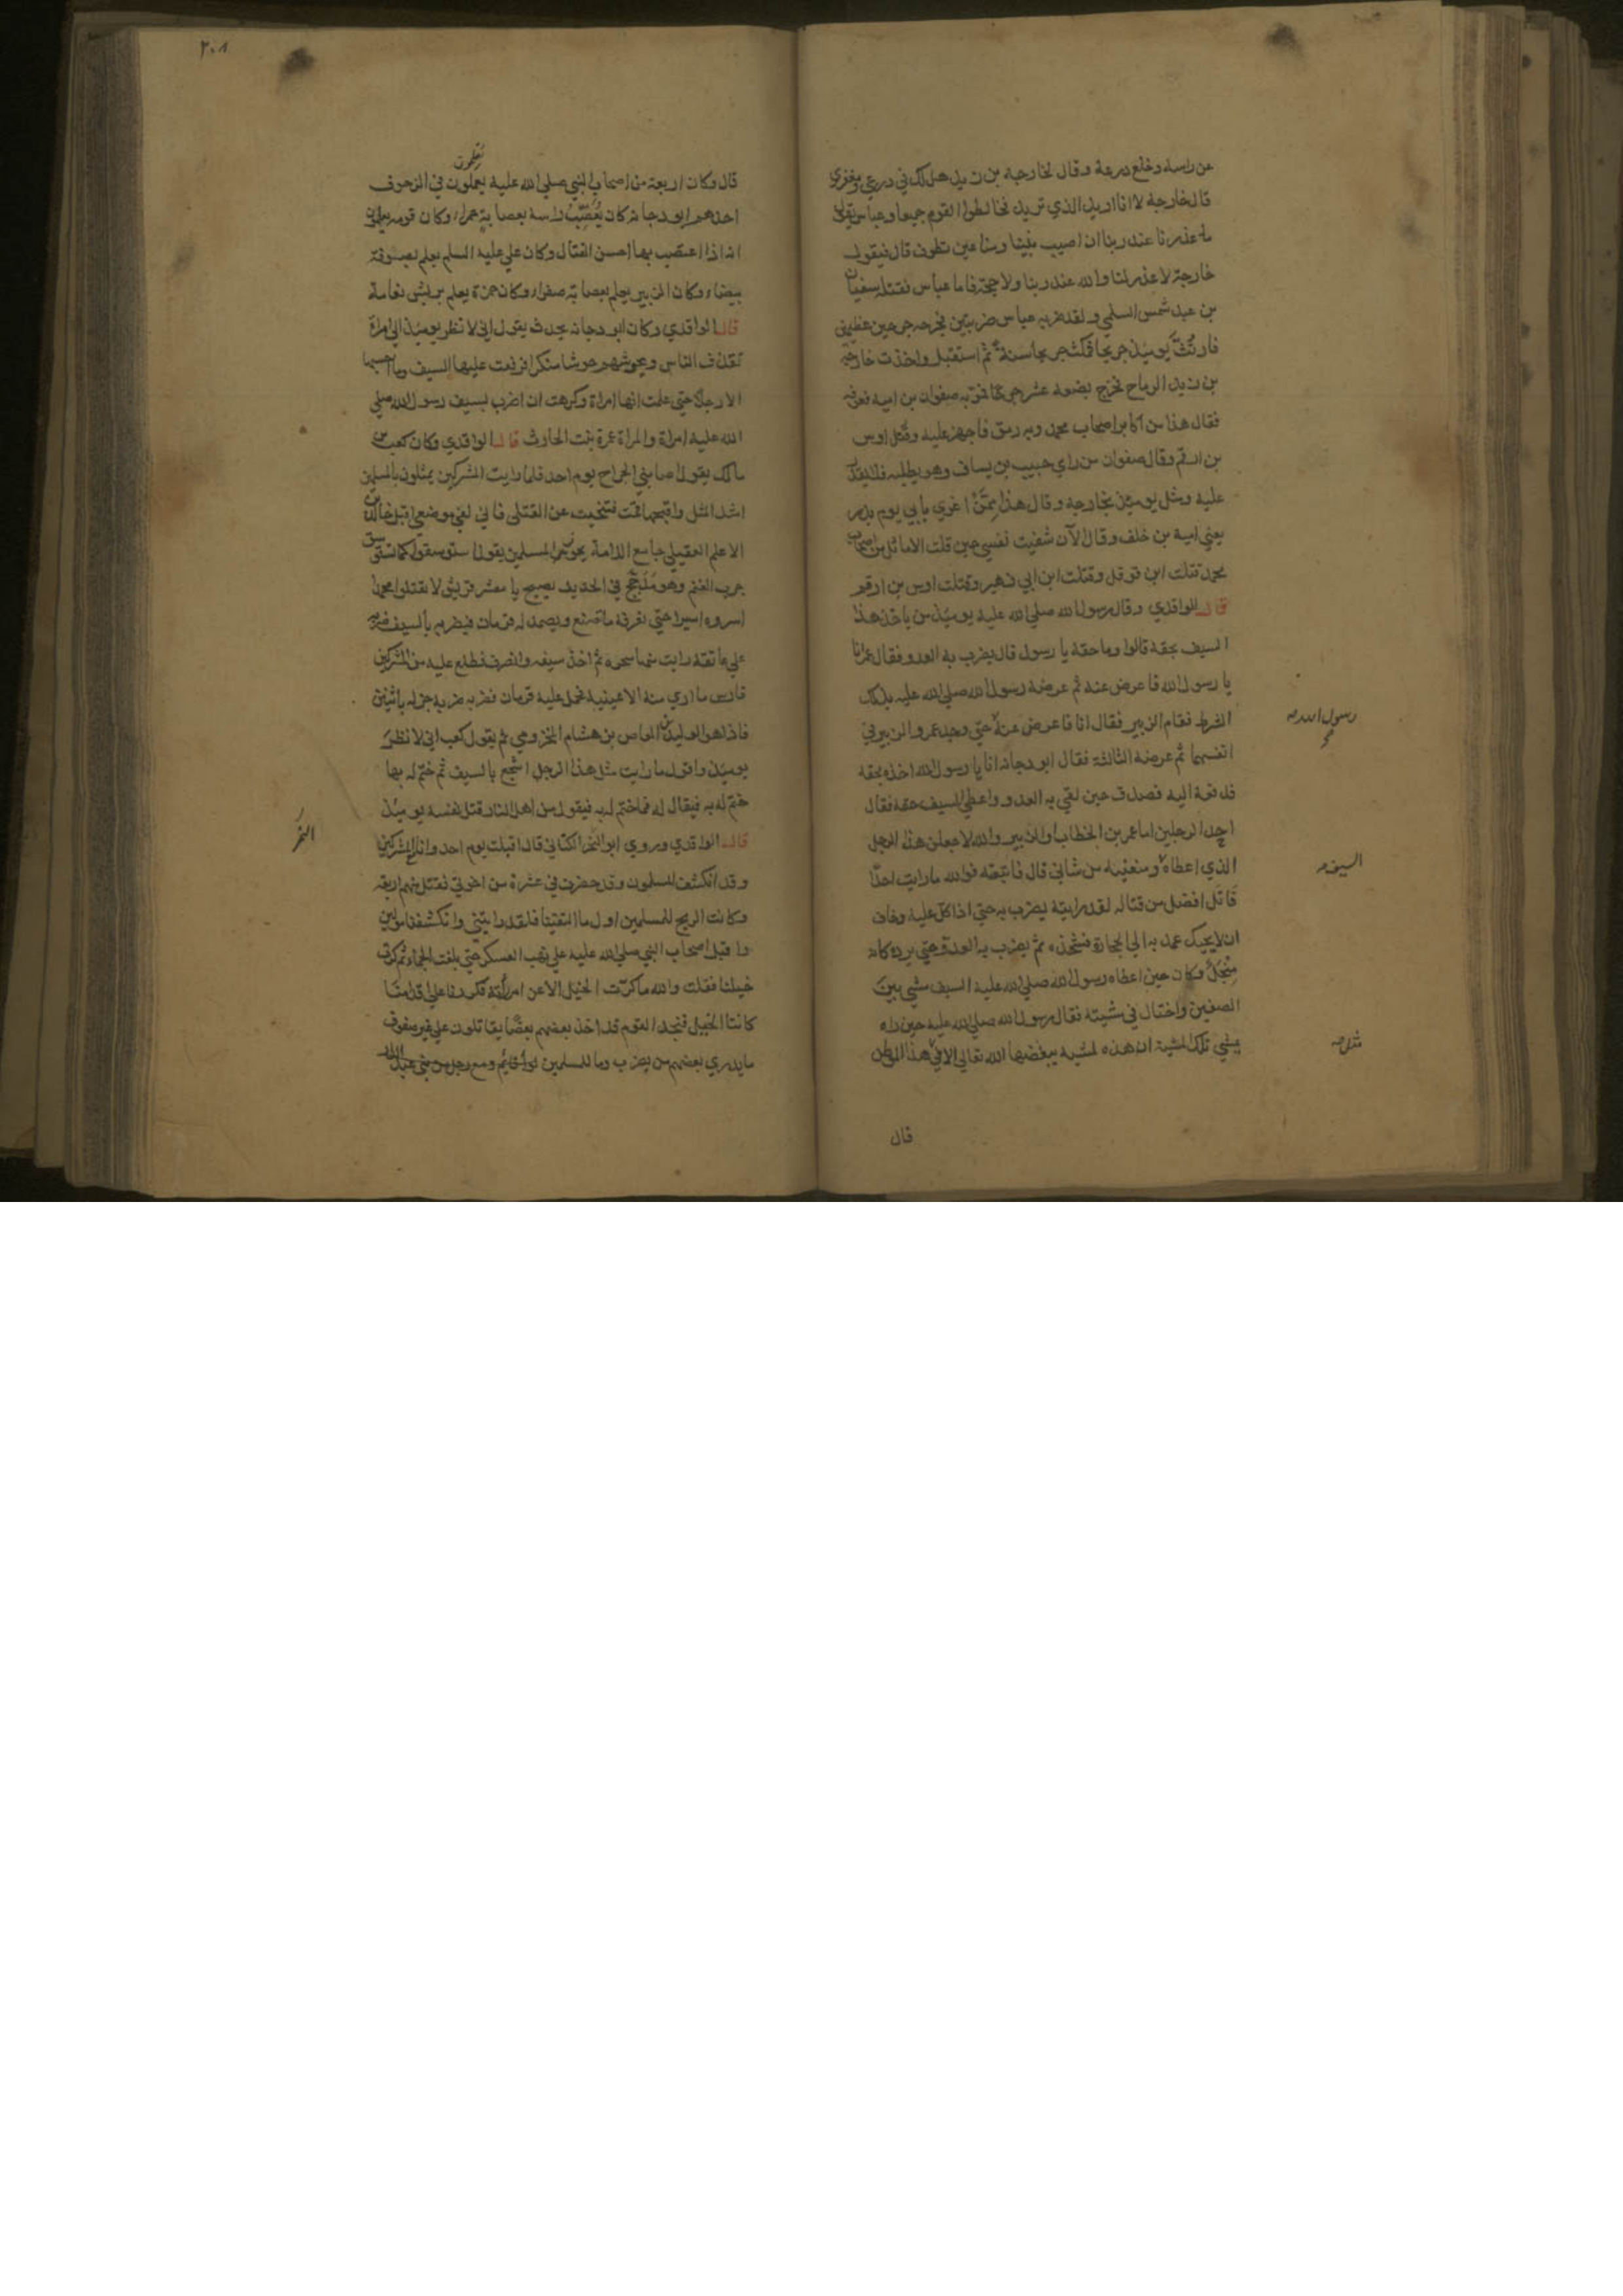 عن راسه وخلع درعه وقال لخارجة بن زيد هل لك في درعي ومغفري
قال خارجة لا انا اريد الذي تريد فخالطوا القوم جميعا وعباس يقول
ما عذرنا عند ربنا ان اصيب نبينا ومنا عين تطرف قال فيقول
خارجة لا عذر لنا والله عند ربنا ولا حجة فاما عباس فقتله سفيان
بن عبد شمس السلمي ولقد ضربه عباس ضربتين فجرحه جرحين عظيمين
فارتُثّ يومئذ جريحا فمكث جريحا سنة ثم استقبل واخذت خارجة
بن زيد الرماح فجرح بضعة عشر جرحا فمر به صفوان بن امية فعرفه
فقال هذا من اكابر اصحاب محمد وبه رمق فاجهز عليه وقُتل اوس
بن ارقم وقال صفوان من راي حبيب بن يساف وهو يطلبه فلا يقدر
عليه ومثل يومئذ بخارجة وقال هذا مِمَّنْ اغري بابي يوم بدر
يعني امية بن خلف وقال الآن شفيت نفسي حين قلت الاماثل من اصحاب
محمد قتلت ابن قوقل وقتلت ابن ابي زهير وقتلت اوس بن ارقم
قال الواقدي وقال رسول الله صلي الله عليه يومئذ من ياخذ هذا
السيف بحقه قالوا وما حقه يا رسول قال يضرب به العدو فقال عمر انا
يا رسول الله فاعرض عنه ثم عرضه رسول الله صلي الله عليه بذلك
الشرط فقام الزبير فقال انا فاعرض عنه حتي وجد عمر والزبير في
انفسهما ثم عرضه الثالثة فقال ابو دجانه انا يا رسول الله اخذه بحقه
فدفعه اليه فصدق حين لقي به العدو واعطي السيف حقه فقال
احد الرجلين اما عمر بن الخطاب او الزبير والله لاجعلن هذا الرجل
الذي اعطاه ومنعنيه من شاني قال فاتبعته فوالله ما رايت احدًا
قاتل افضل من قتاله لقد رايته يضرب به حتي اذا كل عليه وخاف
ان لا يحيك عمد به الي الحجارة فشحذه ثم يضرب به العدو حتي يرده كانه
مِنْجَلٌ وكان حين اعطاه رسول الله صلي الله عليه السيف مشي بين
الصفين واختال في مشيته فقال رسول الله صلي الله عليه حين راه
يمشي تلك المشية ان هذه لمشية يبغضها الله تعالي الا في هذا الموطن
رسول الله
السيف
مثل
قال
٢٠٨
يعلمون
قال وكان اربعة من اصحاب النبي صلي الله عليه يعملون في الزحوف
احدهم ابو دجانة كان يُعصِّبُ راسه بعصابة حمراء وكان قومه يعلمون
انه اذا اعتصب بها احسن القتال وكان علي عليه السلم يعلم بصوفة
بيضاء وكان الزبير يعلم بعصابة صفراء وكان حمزة يعلم بريش نعامة
قال الواقدي وكان ابو دجانه يحدث يقول اني لانظر يومئذ الي امراة
تقذف الناس وتحوشهم حوشا منكرا فرفعت عليها السيف وما احسبها
الا رجلا حتي علمت انها امراة وكرهت ان اضرب بسيف رسول الله صلي
الله عليه امراة والمراة عمرة بنت الحارث قال الواقدي وكان كعب بن
مالك يقول اصابني الجراح يوم احد فلما رايت المشركين يمثلون بالمسلمين
اشد المثل واقبحها قمت فتنحيت عن القتلي فاني لفي موضعي اقبل خالد بن
الاعلم العقيلي جامع اللامة يحوز المسلمين يقول استوسقوا كما تستوسق
جرب الغنم وهو مُدَجَّجٌ في الحديد يصيح يا معشر قريش لا تقتلوا محمدا
اسروه اسيرا حتي نعرفه ما صنع ويصمد له قزمان فيضربه بالسيف ضربة
علي عاتقه رايت منها سحره ثم اخذ سيفه وانصرف فطلع عليه من المشركين
فارس ما اري منه الا عينيه فحمل عليه قزمان فضربه ضربة جزله باثنين
فاذا هو الوليد بن العاص بن هشام المخزومي ثم يقول كعب اني لانظر
يومئذ واقول ما رايت مثل هذا الرجل اشجع بالسيف ثم ختم له بها
ختم له به فيقال له فما ختم له به فيقول من اهل النار قتل نفسه يومئذ
قال الواقدي وروي ابو النمر الكناني قال اقبلت يوم احد وانا مع المشركين
وقد انكشف المسلمون وقد حضرت في عشرة من اخوتي فقتل منهم اربعة
وكانت الريح للمسلمين اول ما التقينا فلقد رايتني وانكشفنا مولين
واقبل اصحاب النبي صلي الله عليه علي نهب العسكر حتي بلغت الجماء ثم كرت
خيلنا فقلت والله ما كرّت الخيل الا عن امر رأته فكررنا علي اقدامنا
كاننا الخيل فنجد القوم قد اخذ بعضهم بعضًا يقاتلون علي غير صفوف
ما يدري بعضهم من يضرب وما للمسلمين لواء قائم ومع رجل من بني عبد الدار
النمر